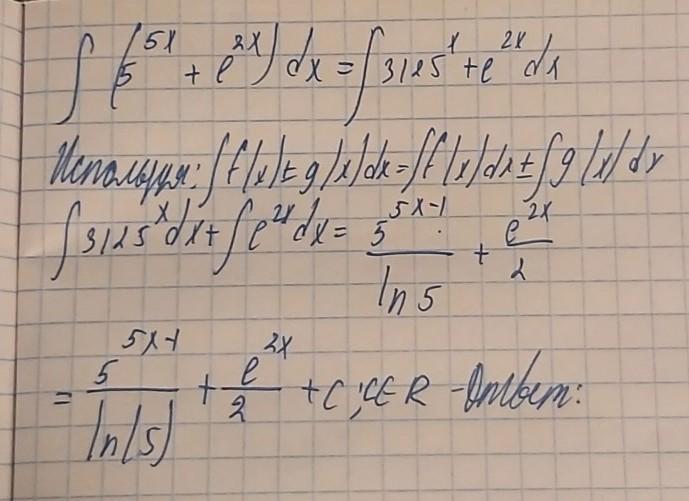 ∫ (5^{5x} + e^{2x}) dx = ∫ 3125^x + e^{2x} dx
Используя: ∫ f(x) ± g(x) dx = ∫ f(x) dx ± ∫ g(x) dx
∫ 3125^x dx + ∫ e^{2x} dx = \frac{5^{5x-1}}{ln 5} + \frac{e^{2x}}{2}
= \frac{5^{5x-1}}{ln(5)} + \frac{e^{2x}}{2} + C; C ∈ R - Ответ: